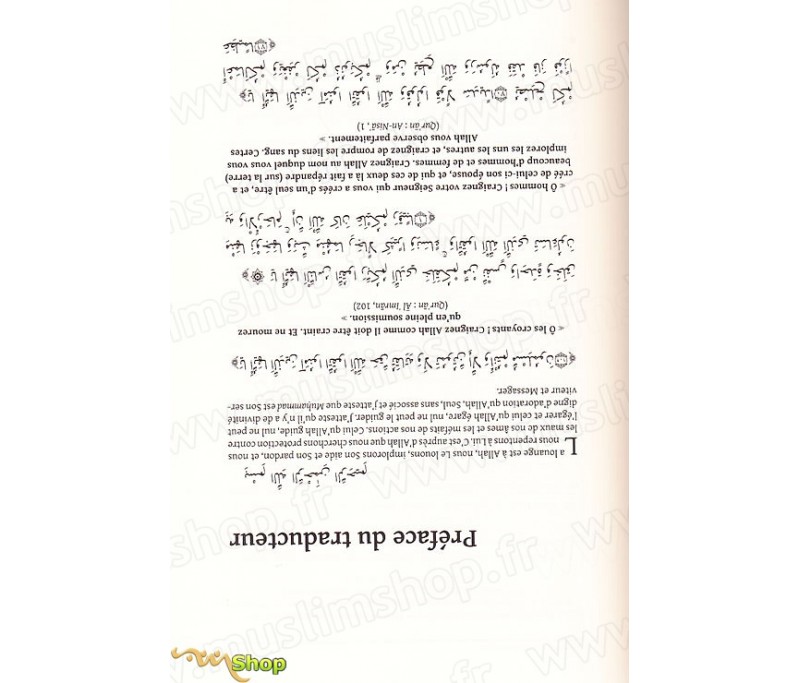 Préface du traducteur
بِسْمِ اللَّهِ الرَّحْمٰنِ الرَّحِيمِ
La louange est à Allah, nous Le louons, implorons Son aide et Son pardon, et nous
nous repentons à Lui. C'est auprès d'Allah que nous cherchons protection contre
les maux de nos âmes et les méfaits de nos actions. Celui qu'Allah guide, nul ne peut
l'égarer et celui qu'Allah égare, nul ne peut le guider. J'atteste qu'il n'y a de divinité
digne d'adoration qu'Allah, Seul, sans associé et j'atteste que Muhammad est Son ser-
viteur et Messager.
﴿ يَا أَيُّهَا الَّذِينَ آمَنُوا اتَّقُوا اللَّهَ حَقَّ تُقَاتِهِ وَلَا تَمُوتُنَّ إِلَّا وَأَنْتُمْ مُسْلِمُونَ ﴾
« Ô les croyants ! Craignez Allah comme Il doit être craint. Et ne mourez
qu'en pleine soumission. »
(Qur'ân : Âl 'Imrân, 102)
﴿ يَا أَيُّهَا النَّاسُ اتَّقُوا رَبَّكُمُ الَّذِي خَلَقَكُمْ مِنْ نَفْسٍ وَاحِدَةٍ وَخَلَقَ
مِنْهَا زَوْجَهَا وَبَثَّ مِنْهُمَا رِجَالًا كَثِيرًا وَنِسَاءً وَاتَّقُوا اللَّهَ الَّذِي تَسَاءَلُونَ
بِهِ وَالْأَرْحَامَ إِنَّ اللَّهَ كَانَ عَلَيْكُمْ رَقِيبًا ﴾
« Ô hommes ! Craignez votre Seigneur qui vous a créés d'un seul être, et a
créé de celui-ci son épouse, et qui de ces deux là a fait répandre (sur la terre)
beaucoup d'hommes et de femmes. Craignez Allah au nom duquel vous vous
implorez les uns les autres, et craignez de rompre les liens du sang. Certes
Allah vous observe parfaitement. »
(Qur'ân : An-Nisâ', 1)
﴿ يَا أَيُّهَا الَّذِينَ آمَنُوا اتَّقُوا اللَّهَ وَقُولُوا قَوْلًا سَدِيدًا ٧٠ يُصْلِحْ لَكُمْ
أَعْمَالَكُمْ وَيَغْفِرْ لَكُمْ ذُنُوبَكُمْ وَمَنْ يُطِعِ اللَّهَ وَرَسُولَهُ فَقَدْ فَازَ فَوْزًا
عَظِيمًا ٧١ ﴾
www.muslimshop.fr
Shop